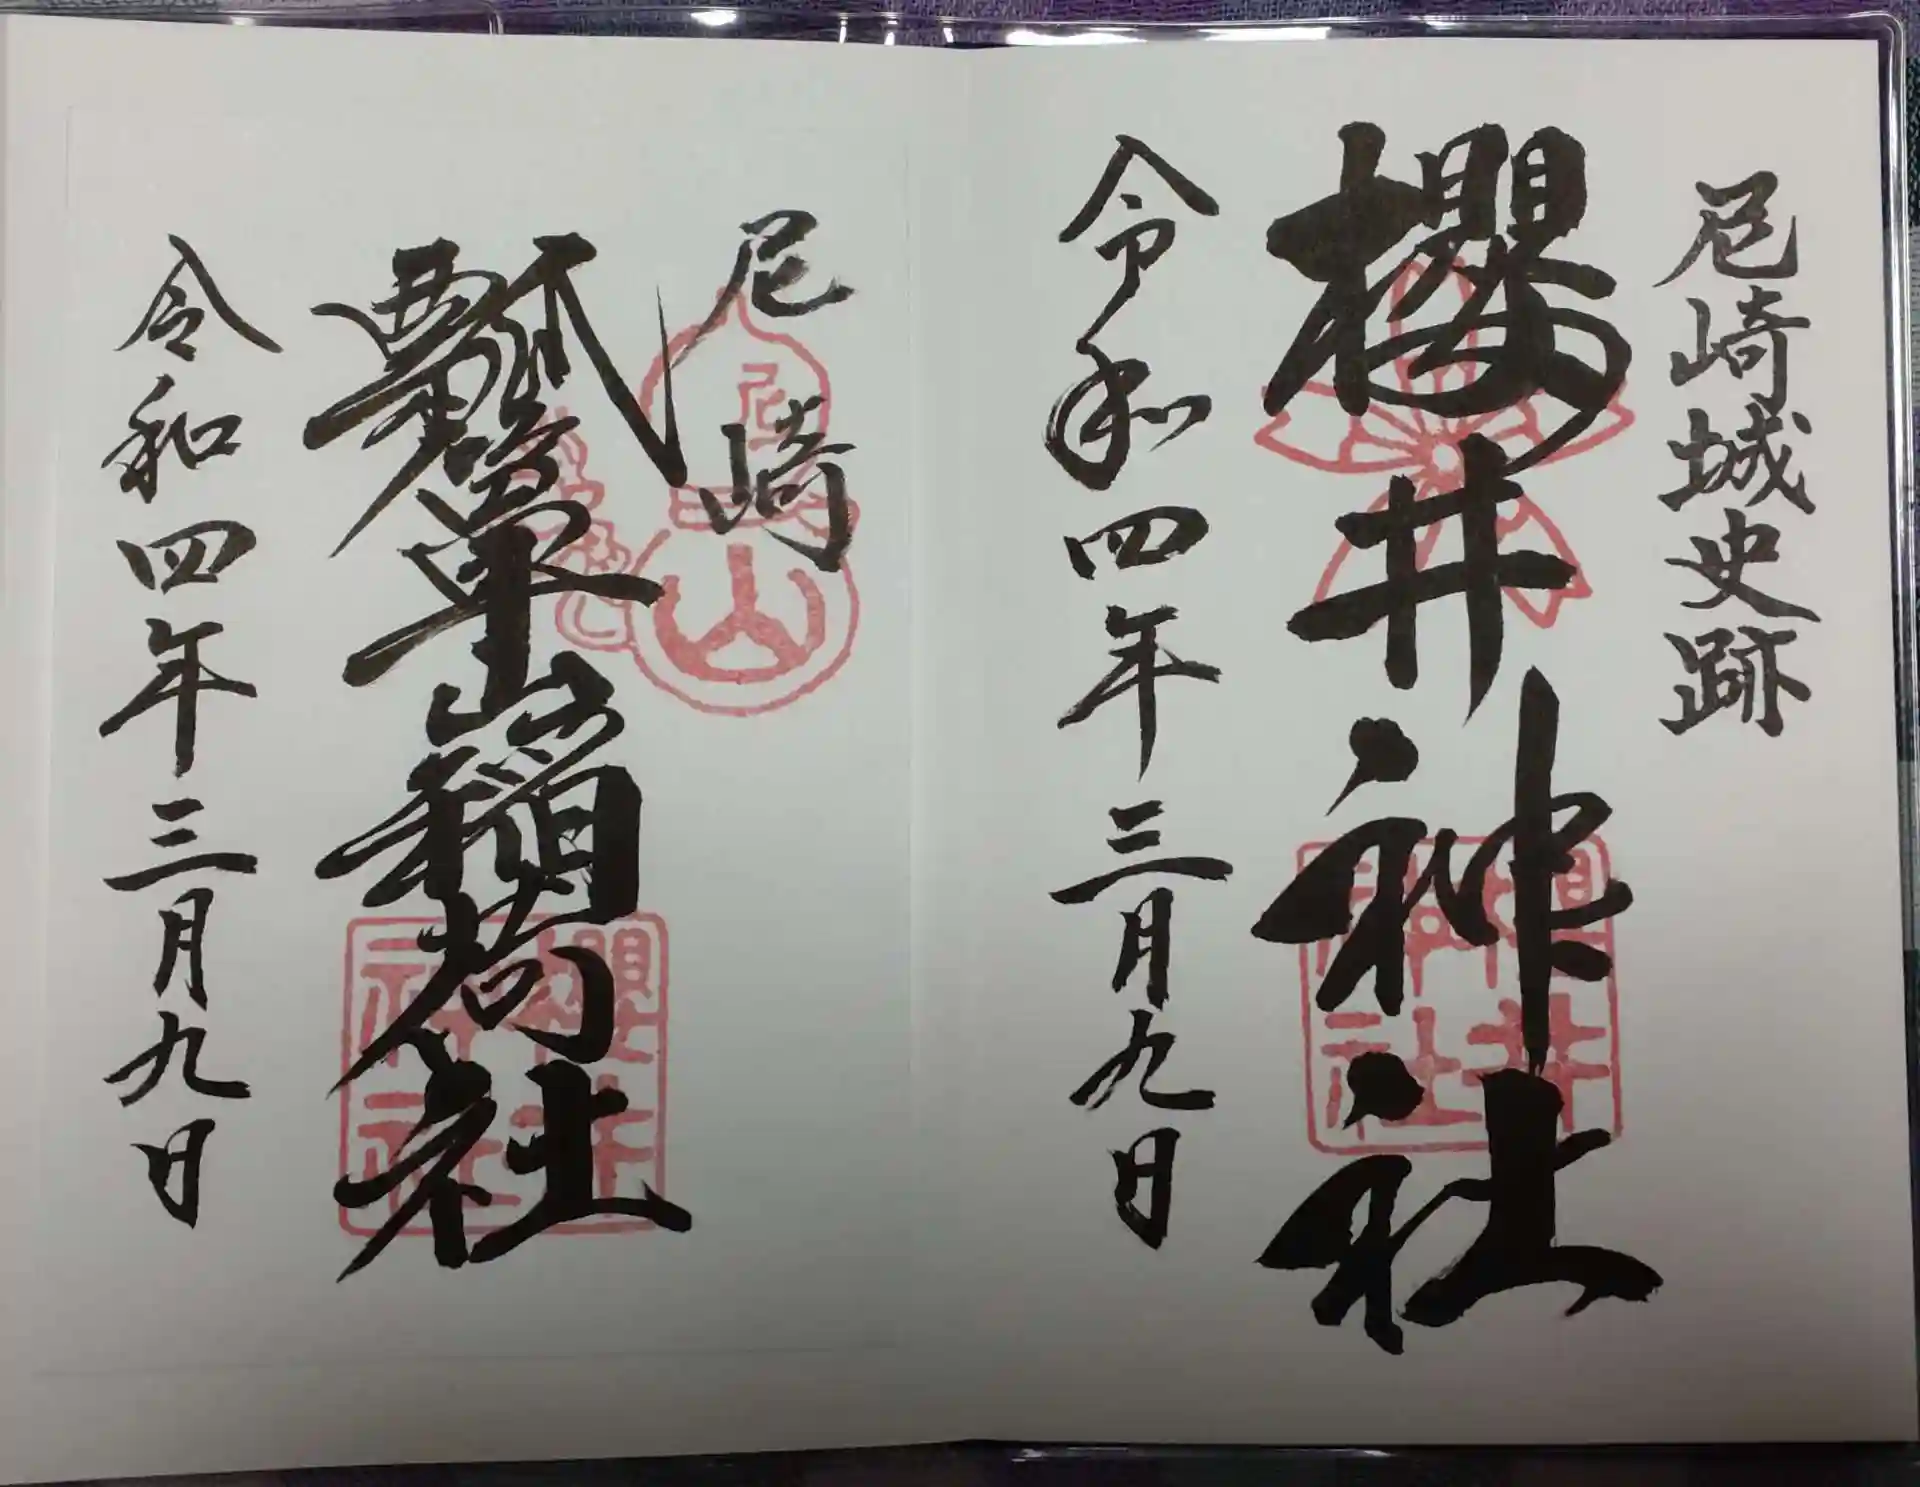 尼崎城史跡
櫻井神社
令和四年三月九日
櫻井
神社
尼崎
尼
瓢箪山稲荷社
令和四年三月九日
櫻井
神社